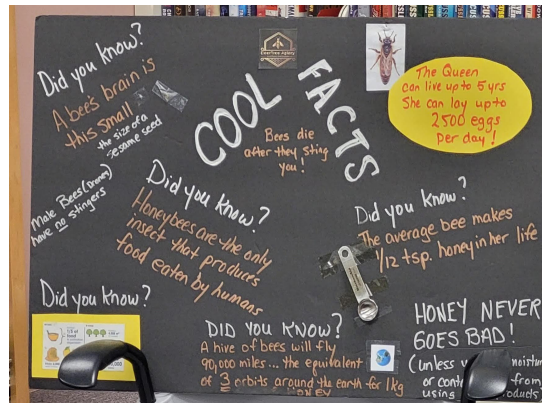 Did you know?
A bee's brain is
this small
the size of a
sesame seed
COOL
FACTS
Bees die
after they sting
you!
The Queen
can live up to 5 yrs
She can lay up to
2500 eggs
Per day!
Male Bees (Drones)
have no stingers
Did you know?
Honeybees are the only
insect that produces
food eaten by humans
Did you know?
The average bee makes
1/12 tsp. honey in her life
Did you know?
DID YOU KNOW?
A hive of bees will fly
90,000 miles... the equivalent
of 3 orbits around the earth for 1kg
HONEY NEVER
GOES BAD!
(unless
or
from
using